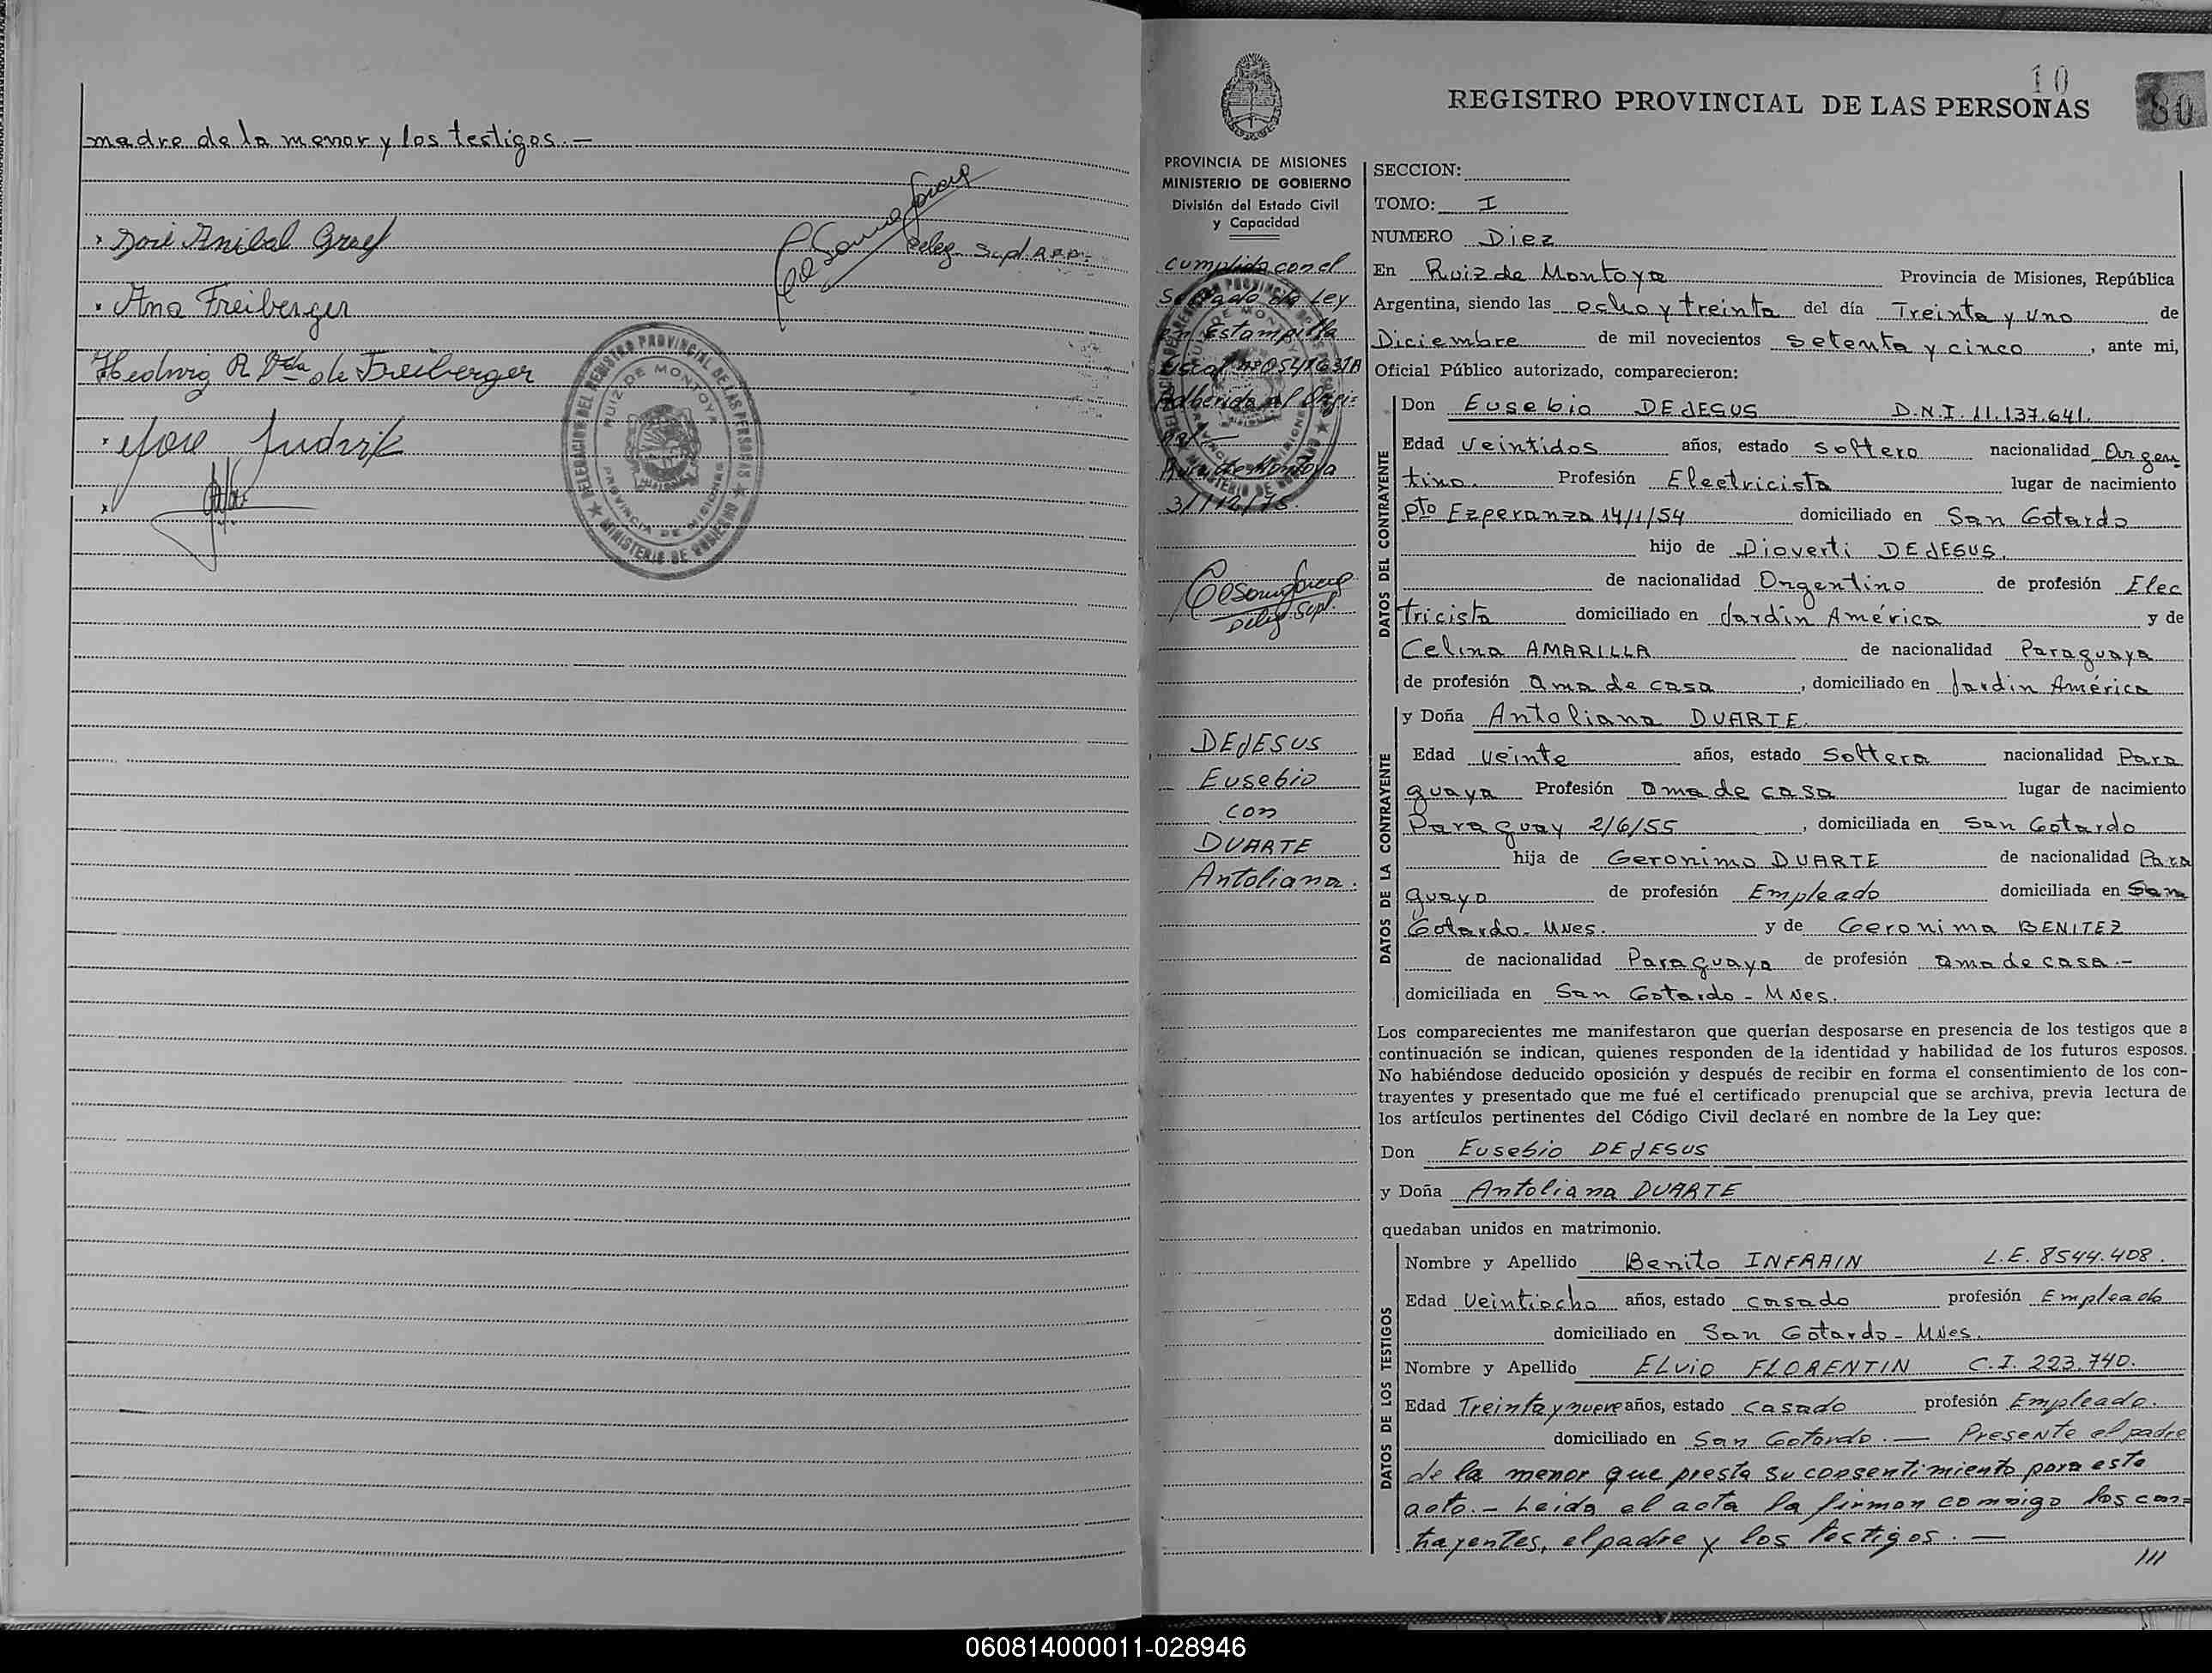 madre de la menor y los testigos.—
José Anibal Graef
Deleg. Supl. R.P.P.
Ana Freiberger
Hedwig R. Vda de Freiberger
José Ludvik
DELEGACION DEL REGISTRO PROVINCIAL DE LAS PERSONAS
RUIZ DE MONTOYA
PROVINCIA DE MISIONES
MINISTERIO DE GOBIERNO
10
REGISTRO PROVINCIAL DE LAS PERSONAS
80
PROVINCIA DE MISIONES
MINISTERIO DE GOBIERNO
División del Estado Civil
y Capacidad
Cumplida con el
Sellado de Ley
en estampilla
fiscal Nº
Adherida al Origi=
nal.—
Ruiz de Montoya
31/12/75.
Deleg. Supl.
DEJESUS
Eusebio
con
DUARTE
Antoliana.
SECCION:
TOMO: I
NUMERO Diez
En Ruiz de Montoya Provincia de Misiones, República
Argentina, siendo las ocho y treinta del día Treinta y uno de
Diciembre de mil novecientos setenta y cinco, ante mi,
Oficial Público autorizado, comparecieron:
DATOS DEL CONTRAYENTE
Don Eusebio DEJESUS D.N.I. 11.137.641.
Edad veintidos años, estado soltero nacionalidad Argen
tino. Profesión Electricista lugar de nacimiento
Pto Ezperanza 14/1/54 domiciliado en San Gotardo
hijo de Dioverti DEJESUS.
de nacionalidad Argentino de profesión Elec
tricista domiciliado en Jardín América y de
Celina AMARILLA de nacionalidad Paraguaya
de profesión ama de casa, domiciliado en Jardín América
DATOS DE LA CONTRAYENTE
y Doña Antoliana DUARTE.
Edad veinte años, estado Soltera nacionalidad Para
guaya Profesión ama de casa lugar de nacimiento
Paraguay 2/6/55, domiciliada en San Gotardo
hija de Geronimo DUARTE de nacionalidad Para
guayo de profesión Empleado domiciliada en San
Gotardo- Mnes. y de Geronima BENITEZ
de nacionalidad Paraguaya de profesión ama de casa.-
domiciliada en San Gotardo - Mnes.
Los comparecientes me manifestaron que querían desposarse en presencia de los testigos que a
continuación se indican, quienes responden de la identidad y habilidad de los futuros esposos.
No habiéndose deducido oposición y después de recibir en forma el consentimiento de los con-
trayentes y presentado que me fué el certificado prenupcial que se archiva, previa lectura de
los artículos pertinentes del Código Civil declaré en nombre de la Ley que:
Don Eusebio DEJESUS
y Doña Antoliana DUARTE
quedaban unidos en matrimonio.
DATOS DE LOS TESTIGOS
Nombre y Apellido Benito INFRAIN L.E. 8544.408.
Edad Veintiocho años, estado casado profesión Empleado
domiciliado en San Gotardo- Mnes.
Nombre y Apellido ELVIO FLORENTIN C.I. 223.740.
Edad Treinta y nueve años, estado casado profesión Empleado.
domiciliado en San Gotardo.— Presente el padre
de la menor que presta su consentimiento para este
acto.- Leida el acta la firman conmigo los con=
trayentes, el padre y los testigos.—
///
060814000011-028946